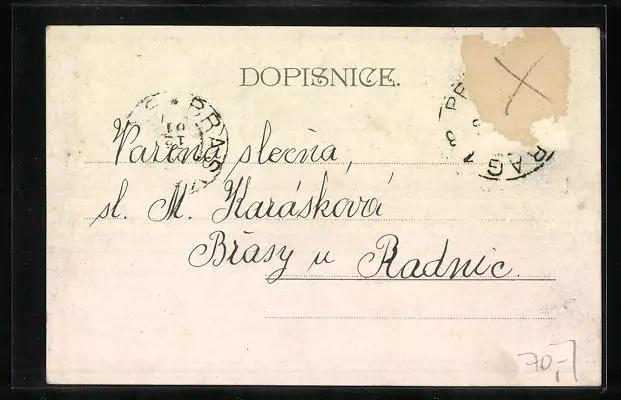 DOPISNICE.
BŘASY
13
01
PRAG
Vzácná slečna,
sl. M. Karásková
Břasy u Radnic.
70,-